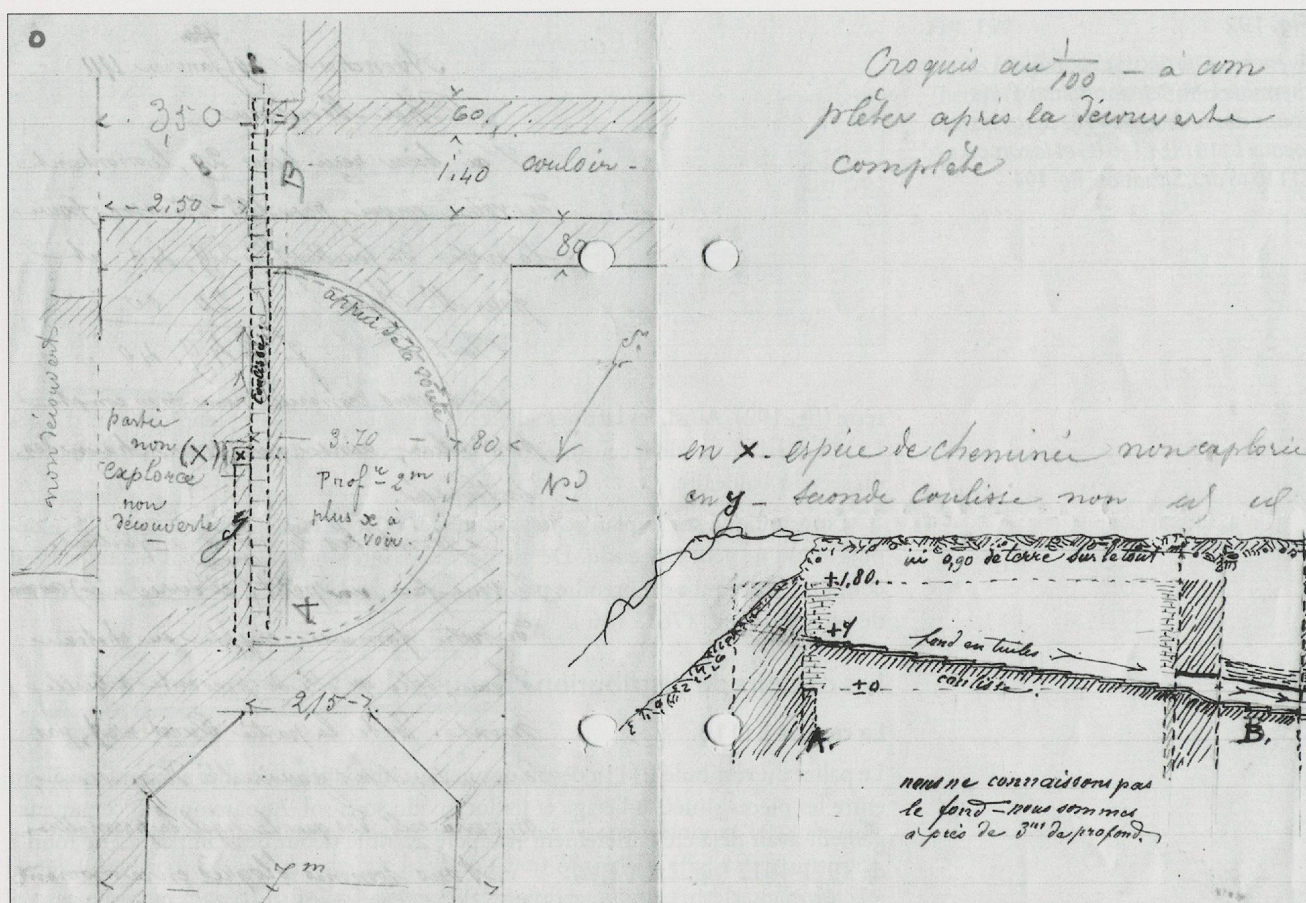 Croquis au 1/100 - à com
pléter après la découverte
complète
350
B
60
1.40 couloir.
2.50
80
appui de la voûte
Coulisse
non découvert
partie
non (X) x
explorée
non
découverte y
3.70 80
Prof r 2m
plus x à
voir.
S.
Nd
A
2,15
7 m
en x. espèce de cheminée non explorée
en y - seconde coulisse non
ici 0,90 de terre sur le tout
+1,80.
+y
fond en tuiles
coulisse.
±0
A.
B.
nous ne connaissons pas
le fond - nous sommes
à près de 3m de profond.